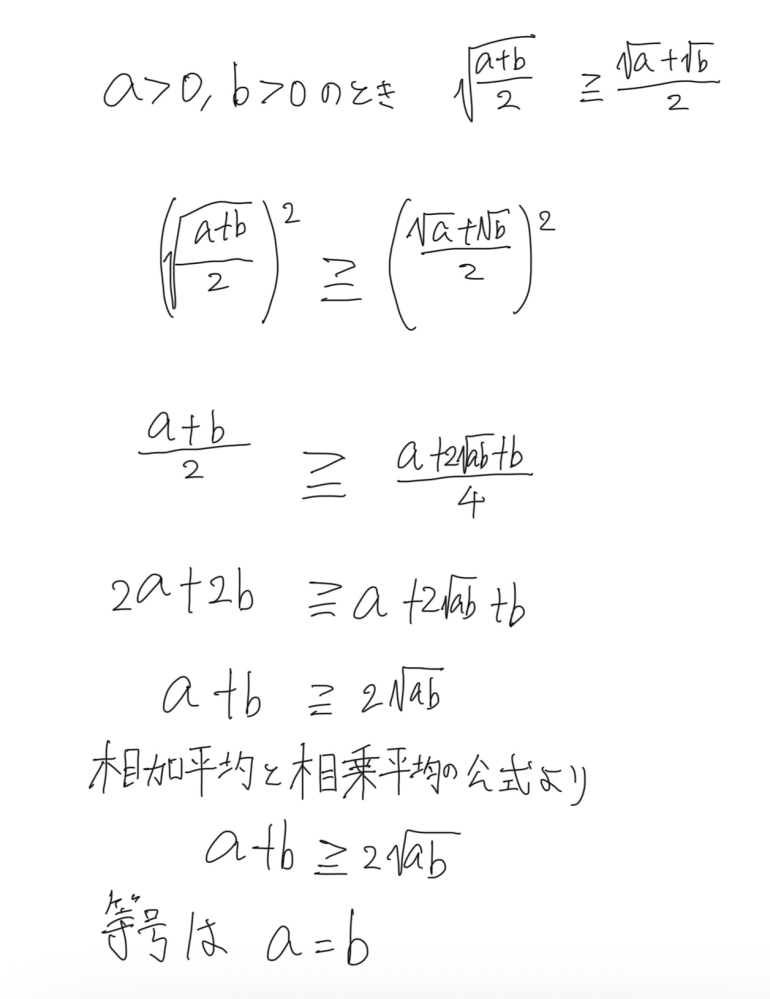 a>0, b>0 のとき √((a+b)/2) ≧ (√a+√b)/2
(√((a+b)/2))² ≧ ((√a+√b)/2)²
(a+b)/2 ≧ (a+2√ab+b)/4
2a+2b ≧ a+2√ab+b
a+b ≧ 2√ab
相加平均と相乗平均の公式より
a+b ≧ 2√ab
等号は a=b